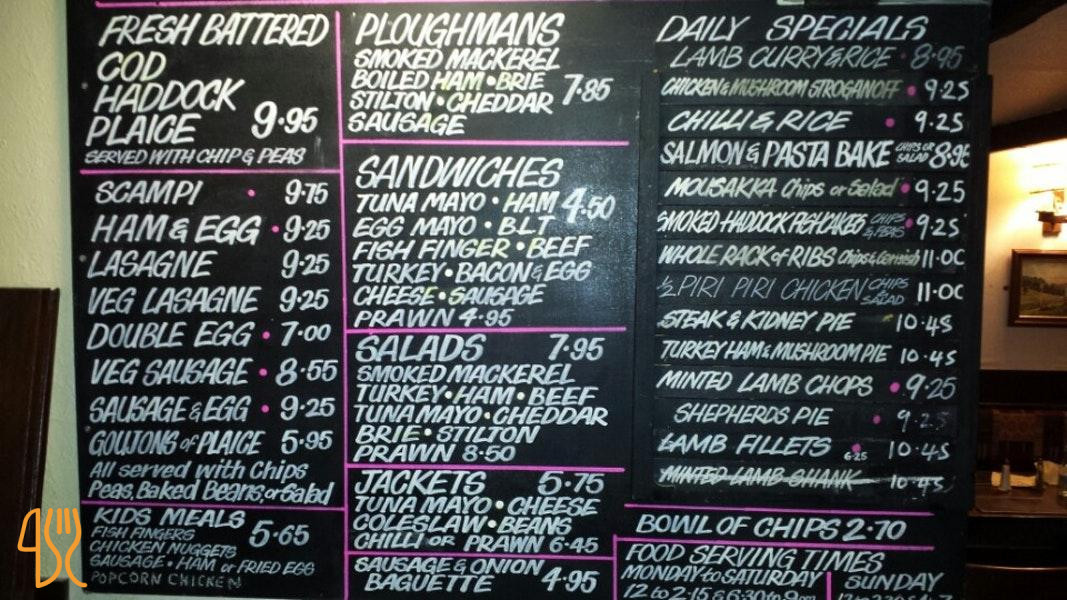 FRESH BATTERED
COD
HADDOCK
PLAICE 9.95
SERVED WITH CHIP & PEAS
SCAMPI • 9.75
HAM & EGG • 9.25
LASAGNE 9.25
VEG LASAGNE 9.25
DOUBLE EGG • 7.00
VEG SAUSAGE • 8.55
SAUSAGE & EGG • 9.25
GOUJONS of PLAICE 5.95
All served with Chips
Peas, Baked Beans, or Salad
KIDS MEALS 5.65
FISH FINGERS
CHICKEN NUGGETS
SAUSAGE • HAM or FRIED EGG
POPCORN CHICKEN
PLOUGHMANS
SMOKED MACKEREL
BOILED HAM • BRIE 7.85
STILTON • CHEDDAR
SAUSAGE
SANDWICHES
TUNA MAYO • HAM 4.50
EGG MAYO • BLT
FISH FINGER • BEEF
TURKEY • BACON & EGG
CHEESE • SAUSAGE
PRAWN 4.95
SALADS 7.95
SMOKED MACKEREL
TURKEY • HAM • BEEF
TUNA MAYO • CHEDDAR
BRIE • STILTON
PRAWN 8.50
JACKETS 5.75
TUNA MAYO • CHEESE
COLESLAW • BEANS
CHILLI OR PRAWN 6.45
SAUSAGE & ONION 4.95
BAGUETTE
DAILY SPECIALS
LAMB CURRY & RICE • 8.95
CHICKEN & MUSHROOM STROGANOFF • 9.25
CHILLI & RICE • 9.25
SALMON & PASTA BAKE CHIPS OR SALAD 8.95
MOUSAKKA Chips or Salad • 9.25
SMOKED HADDOCK FISHCAKES CHIPS & PEAS • 9.25
WHOLE RACK of RIBS Chips & Garnish 11.00
½ PIRI PIRI CHICKEN CHIPS OR SALAD 11.00
STEAK & KIDNEY PIE 10.45
TURKEY HAM & MUSHROOM PIE 10.45
MINTED LAMB CHOPS • 9.25
SHEPHERDS PIE • 9.25
LAMB FILLETS 6.25 10.45
MINTED LAMB SHANK 10.45
BOWL OF CHIPS 2.70
FOOD SERVING TIMES
MONDAY to SATURDAY
12 to 2.15 & 6.30 to 9pm
SUNDAY